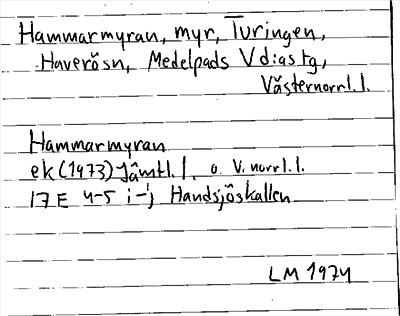 Hammarmyran, myr, Turingen,
Haverösn, Medelpads V d:as tg,
Västernorrl. l.
Hammarmyran
ek (1973) Jämtl. l. o. V. norrl. l.
17 E 4-5 i-j Handsjöskallen
LM 1974